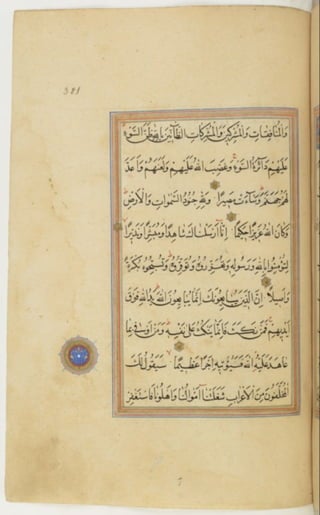 381
وَالْمُنَافِقَاتِ وَالْمُشْرِكِينَ وَالْمُشْرِكَاتِ الظَّانِّينَ بِاللهِ ظَنَّ السَّوْءِ
عَلَيْهِمْ دَائِرَةُ السَّوْءِ وَغَضِبَ اللهُ عَلَيْهِمْ وَلَعَنَهُمْ وَأَعَدَّ
لَهُمْ جَهَنَّمَ وَسَاءَتْ مَصِيرًا وَلِلهِ جُنُودُ السَّمٰوَاتِ وَالْأَرْضِ
وَكَانَ اللهُ عَزِيزًا حَكِيمًا إِنَّا أَرْسَلْنَاكَ شَاهِدًا وَمُبَشِّرًا وَنَذِيرًا
لِتُؤْمِنُوا بِاللهِ وَرَسُولِهِ وَتُعَزِّرُوهُ وَتُوَقِّرُوهُ وَتُسَبِّحُوهُ بُكْرَةً
وَأَصِيلًا إِنَّ الَّذِينَ يُبَايِعُونَكَ إِنَّمَا يُبَايِعُونَ اللهَ يَدُ اللهِ فَوْقَ
أَيْدِيهِمْ فَمَنْ نَكَثَ فَإِنَّمَا يَنْكُثُ عَلَى نَفْسِهِ وَمَنْ أَوْفَى بِمَا
عَاهَدَ عَلَيْهُ اللهَ فَسَيُؤْتِيهِ أَجْرًا عَظِيمًا سَيَقُولُ لَكَ
الْمُخَلَّفُونَ مِنَ الْأَعْرَابِ شَغَلَتْنَا أَمْوَالُنَا وَأَهْلُونَا فَاسْتَغْفِرْ